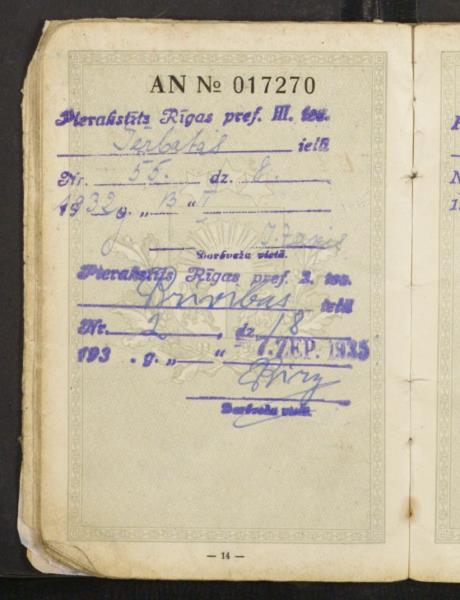 AN № 017270
Pierakstīts Rīgas pref. III. iec.
Tērbatas ielā
Nr. 55. dz. 8.
1932 g. „ 15 “ I
Darbveža vietā.
Pierakstīts Rīgas pref. 2. iec.
Brīvības ielā
Nr. 2, dz. 18
193 . g. „ “ 7. ZEP. 1935
Darbveža vietā.
— 14 —